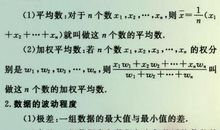 (1)平均数:对于 n 个数 x₁,x₂,⋯,xₙ,则 x̄=1/n(x₁
+x₂+⋯+xₙ)就叫做这 n 个数的平均数.
(2)加权平均数:若 n 个数 x₁,x₂,⋯,xₙ 的权分
别是 w₁,w₂,⋯,wₙ,则 (x₁w₁+x₂w₂+⋯+xₙwₙ)/(w₁+w₂+⋯+wₙ) 叫
做这 n 个数的加权平均数.
2.数据的波动程度
(1)极差:一组数据的最大值与最小值的差.